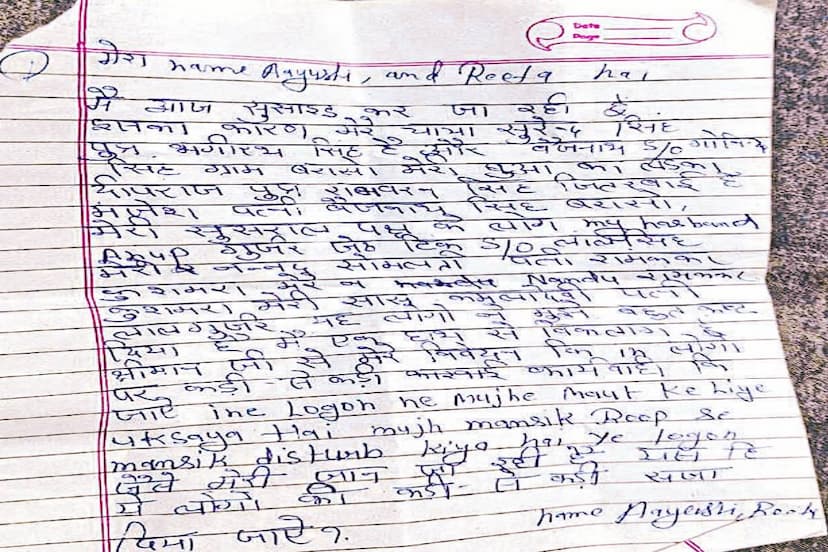 Date
Page
① मेरा name Aayushi, and Reeta hai
मैं आज सुसाइड कर जा रही हूँ
इसका कारण मेरे चाचा सुरेन्द्र सिंह
पुत्र भगीरथ सिंह है और बैजनाथ S/O गोविन्द
सिंह ग्राम बरासा मेरी बुआ का लड़का
दीपराज पुत्र रामवरन सिंह है
पत्नी बैजनाथ सिंह बरासा,
मेरे सुसराल पक्ष के लोग my husband
Anup गुर्जर जेठ S/O
मेरी नन्द पत्नी
कुशमरा मेरे Nandu
कुशमरा मेरी सास कमलादेवी पत्नी
लाल गुर्जर यह लोगो ने मुझे बहुत कष्ट
दिया है मैं एक हाथ से विकलांग हूँ
श्रीमान जी से मेरे निवेदन कि इन लोगो
पर कड़ी-से कड़ी कारवाई कार्यवाही कि
जाऐ ine Logon ne Mujhe Maut Ke liye
uksaya Hai mujh mansik Roop se
mansik disturb kiya hai ye logon
मेरी जान जा रही है
ये लोगो को कड़ी-से कड़ी सजा
दिया जाऐ?.
name Aayushi, Reeta